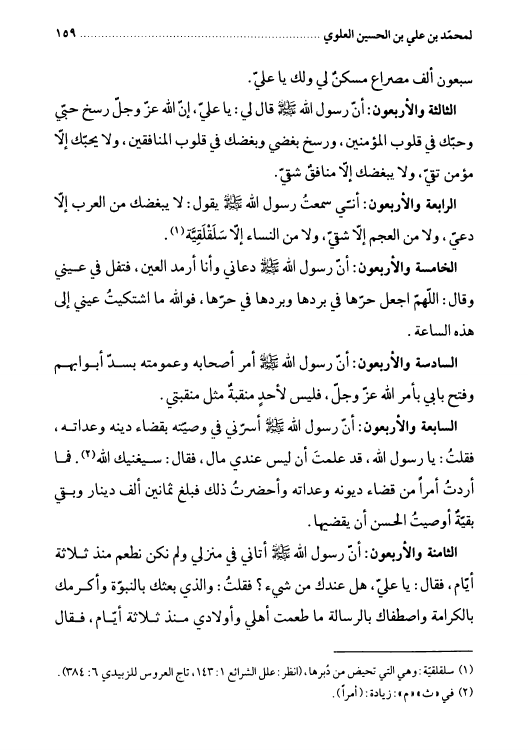 لمحمّد بن علي بن الحسين العلوي ............................................................ ١٥٩
سبعون ألف مصراع مسكنٌ لي ولك يا عليّ.
الثالثة والأربعون: أنّ رسول الله ﷺ قال لي: يا عليّ، إنّ الله عزّ وجلّ رسخ حبّي
وحبّك في قلوب المؤمنين، ورسخ بغضي وبغضك في قلوب المنافقين، ولا يحبّك إلّا
مؤمن تقيّ، ولا يبغضك إلّا منافقٌ شقيّ.
الرابعة والأربعون: أنّني سمعتُ رسول الله ﷺ يقول: لا يبغضك من العرب إلّا
دعيّ، ولا من العجم إلّا شقيّ، ولا من النساء إلّا سَلَقْلَقِيَّة(١).
الخامسة والأربعون: أنّ رسول الله ﷺ دعاني وأنا أرمد العين، فتفل في عيني
وقال: اللّهمّ اجعل حرّها في بردها وبردها في حرّها، فوالله ما اشتكيتُ عيني إلى
هذه الساعة.
السادسة والأربعون: أنّ رسول الله ﷺ أمر أصحابه وعمومته بسدّ أبوابهم
وفتح بابي بأمر الله عزّ وجلّ، فليس لأحدٍ منقبةٌ مثل منقبتي.
السابعة والأربعون: أنّ رسول الله ﷺ أسرّني في وصيّته بقضاء دينه وعداته،
فقلتُ: يا رسول الله، قد علمتَ أن ليس عندي مال، فقال: سيغنيك الله(٢). فما
أردتُ أمراً من قضاء ديونه وعداته وأحضرتُ ذلك فبلغ ثمانين ألف دينار وبقي
بقيّةٌ أوصيتُ الحسن أن يقضيها.
الثامنة والأربعون: أنّ رسول الله ﷺ أتاني في منزلي ولم نكن نطعم منذ ثلاثة
أيّام، فقال: يا عليّ، هل عندك من شيء؟ فقلتُ: والذي بعثك بالنبوّة وأكرمك
بالكرامة واصطفاك بالرسالة ما طعمت أهلي وأولادي منذ ثلاثة أيّام، فقال
(١) سلقلقيّة: وهي التي تحيض من دُبرها، (انظر: علل الشرائع ١: ١٤٣، تاج العروس للزبيدي ٦: ٣٨٤).
(٢) في «ث» «م»: زيادة: (أمراً).